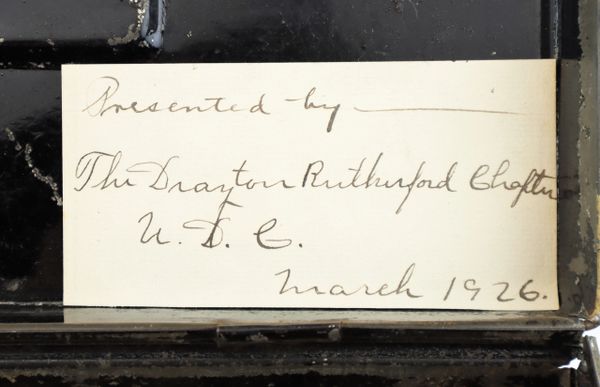 Presented by —
The Drayton Rutherford Chapter
U. D. C.
March 1926.